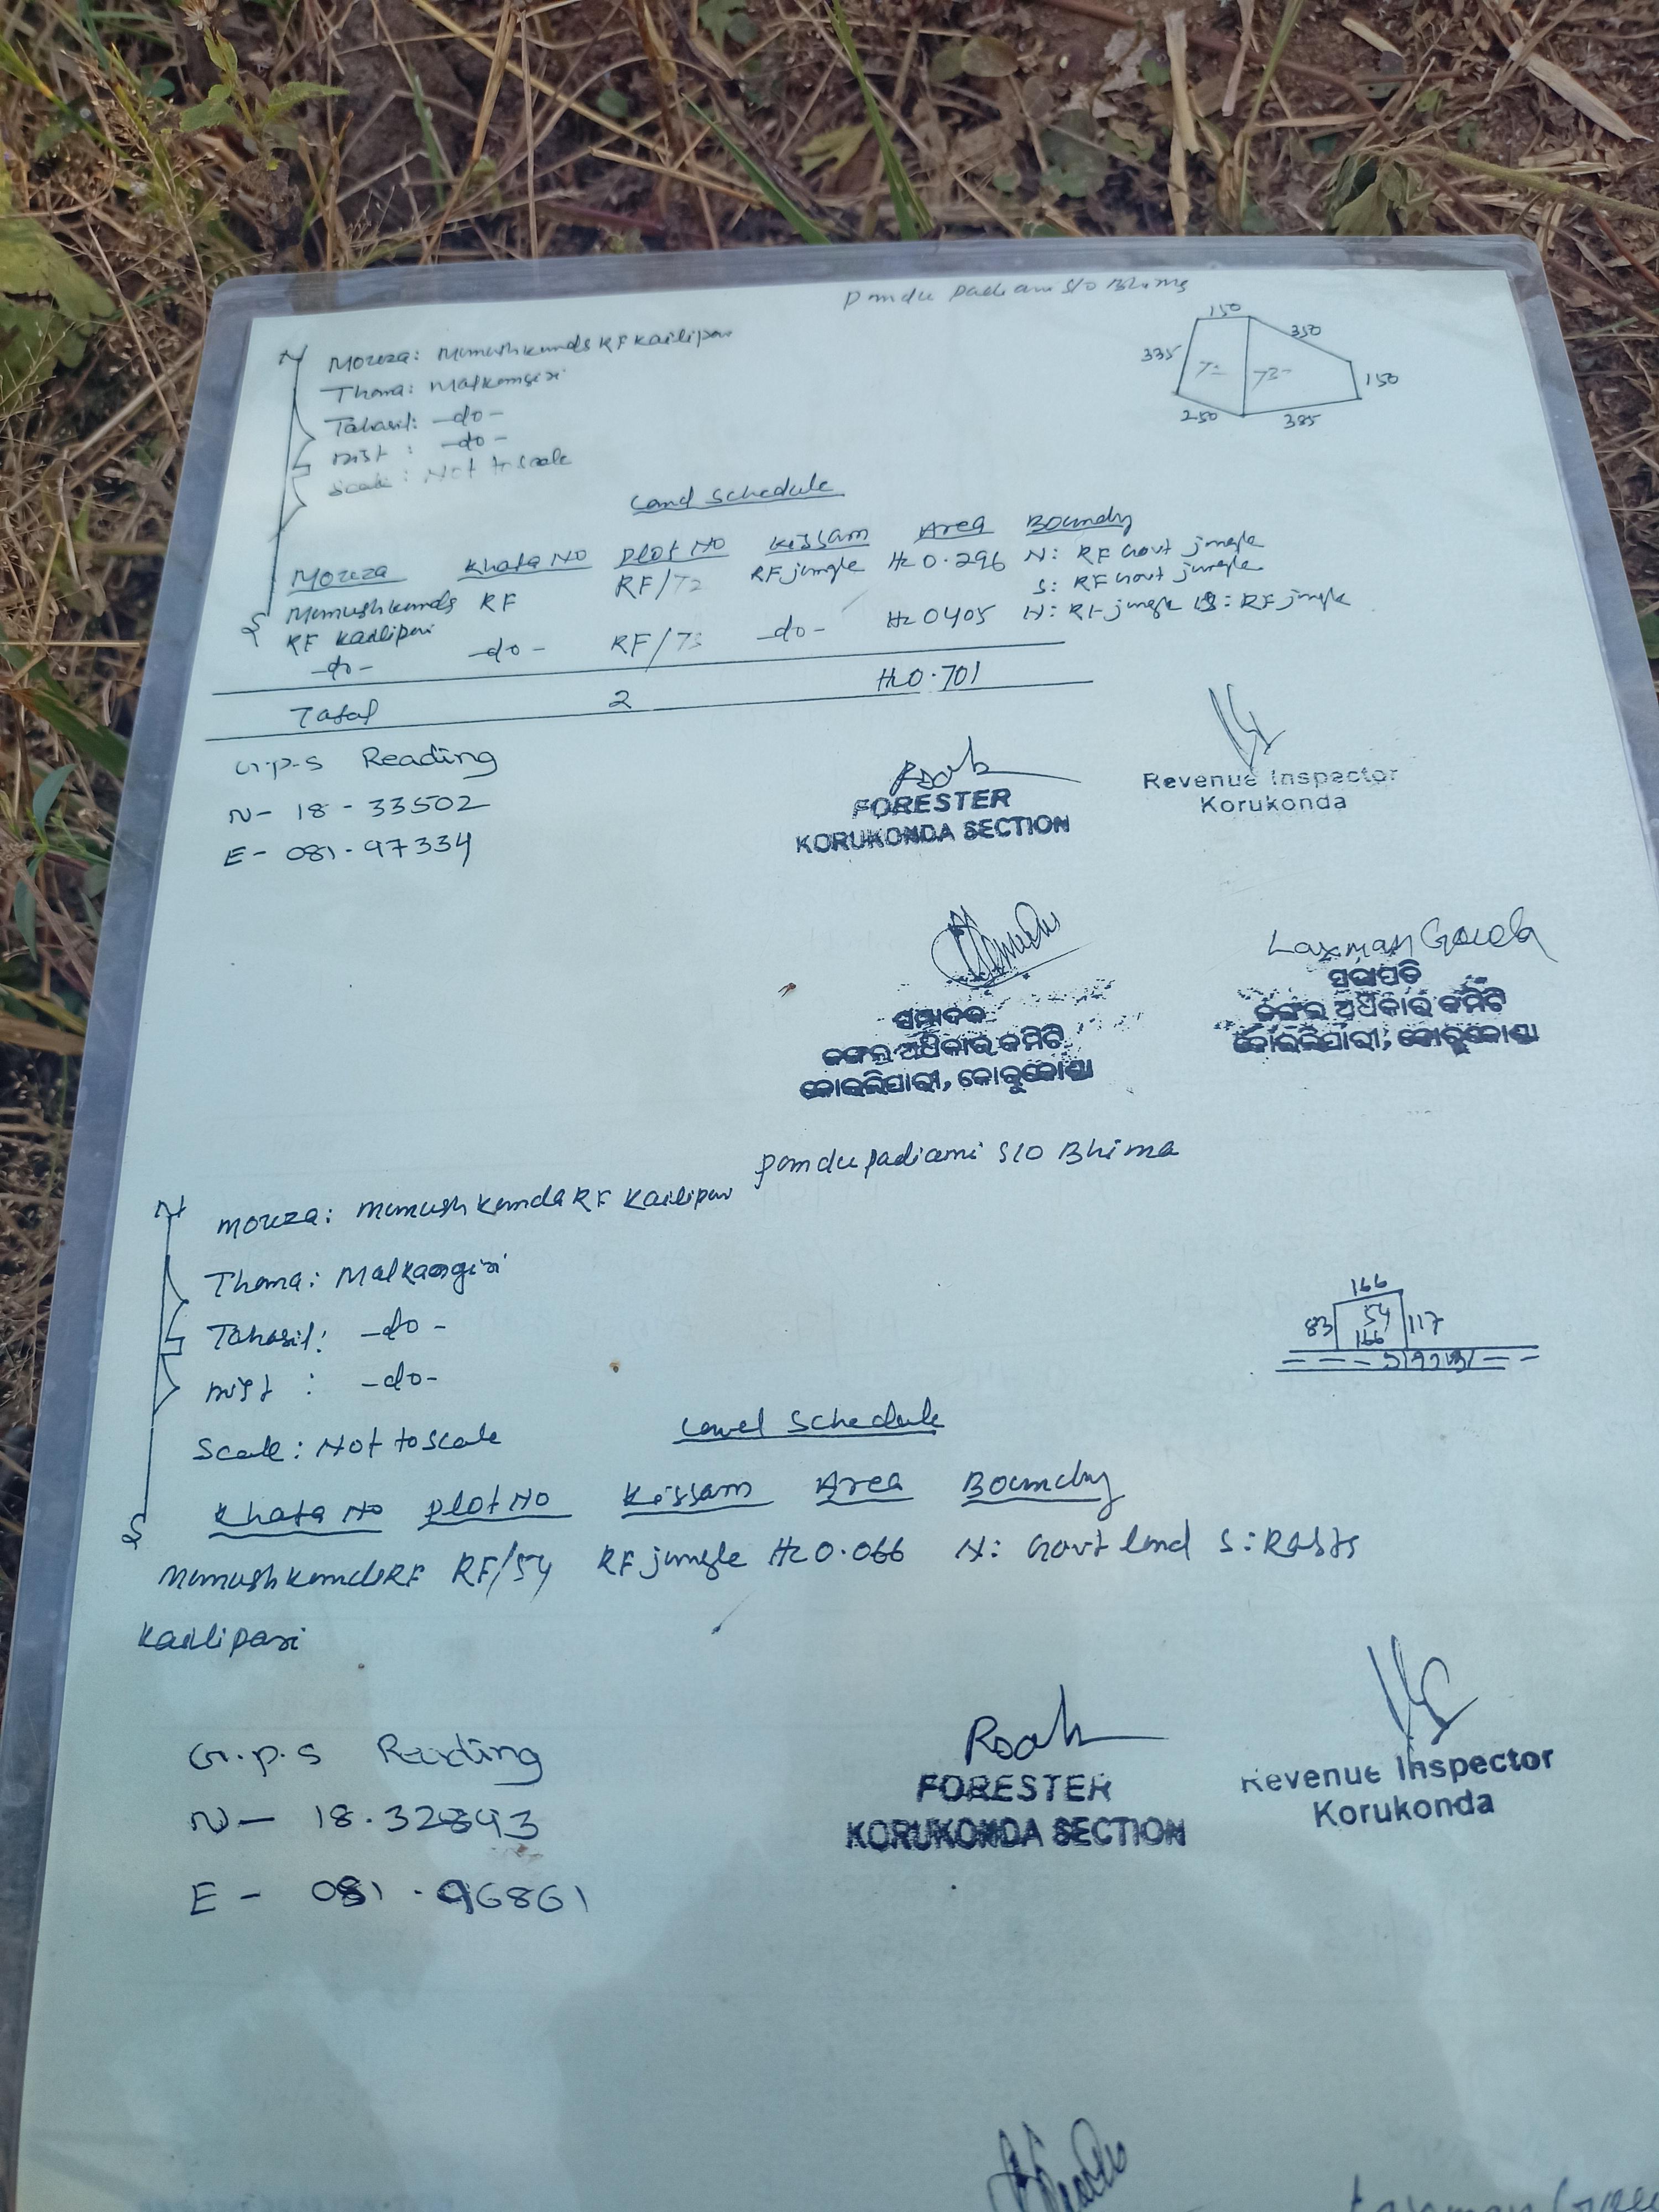 Pandu Padiami S/o Bhima
N
Mouza: Mamushkunda RF Kailipari
Thana: Malkangiri
Tahasil: -do-
Dist : -do-
Scale: Not to scale
S
150
350
335
72
73
150
250
385
Land Schedule
Mouza Khata No Plot No Kissam Area Boundy
Mamushkunda RF RF/72 RF jungle H 0.296 N: RF Govt jungle
RF Kailipari S: RF Govt jungle
-do- -do- RF/73 -do- H 0405 N: RF jungle S: RF jungle
Total 2 H 0.701
G.P.S Reading
N- 18 - 33502
E- 081-97334
FORESTER
KORUKONDA SECTION
Revenue Inspector
Korukonda
ସମ୍ପାଦକ
ଜଙ୍ଗଲ ଅଧିକାର କମିଟି
କୋଇଲିପାରୀ, କୋରୁକୋଣ୍ଡା
Laxman Gouda
ସଭାପତି
ଜଙ୍ଗଲ ଅଧିକାର କମିଟି
କୋଇଲିପାରୀ, କୋରୁକୋଣ୍ଡା
Pandu Padiami S/o Bhima
N
Mouza: Mamushkunda RF Kailipari
Thana: Malkangiri
Tahasil: -do-
Dist : -do-
Scale: Not to scale
S
166
83 54 117
166
Land Schedule
Khata No Plot No Kissam Area Boundy
Mamushkunda RF RF/54 RF jungle H 0.066 N: Govt land S:
Kailipari
G.P.S Reading
N- 18.32893
E- 081.96861
FORESTER
KORUKONDA SECTION
Revenue Inspector
Korukonda